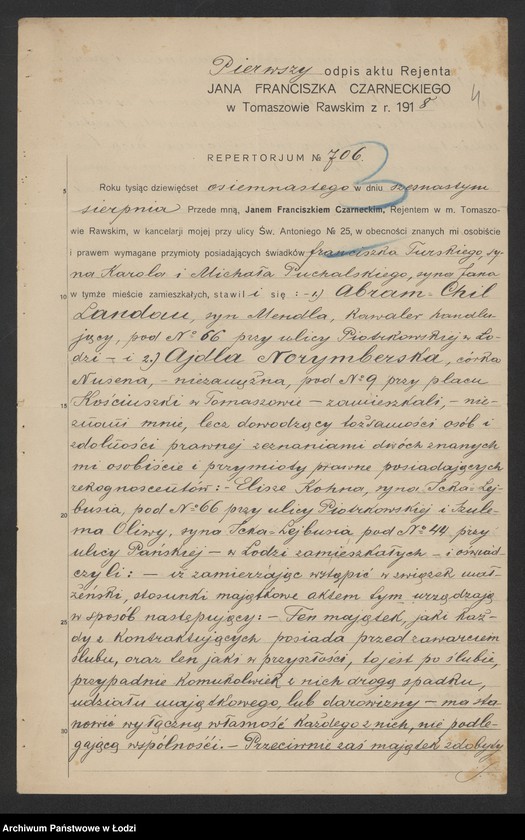 Pierwszy odpis aktu Rejenta
JANA FRANCISZKA CZARNECKIEGO
w Tomaszowie Rawskim z r. 1918
4
REPERTORJUM № 706.
3
5
Roku tysiąc dziewięćset osiemnastego w dniu szesnastym
sierpnia Przede mną, Janem Franciszkiem Czarneckim, Rejentem w m. Tomaszo-
wie Rawskim, w kancelarji mojej przy ulicy Św. Antoniego № 25, w obecności znanych mi osobiście
i prawem wymagane przymioty posiadających świadków Franciszka Turskiego, sy-
na Karola i Michała Puchalskiego, syna Jana
10
w tymże mieście zamieszkałych, stawili się :- 1) Abram-Chil
Landau, syn Mendla, kawaler handlu-
jący, pod № 66 przy ulicy Piotrkowskiej w Ło-
dzi - i 2) Ajdla Norymberska, córka
Nusena, - niezamężna, pod № 9 przy placu
15
Kościuszki w Tomaszowie - zamieszkali, - nie-
znani mnie, lecz dowodzący tożsamości osób i
zdolności prawnej zeznaniami dwóch znanych
mi osobiście i przymioty prawne posiadających
rekognoscentów:- Elisze Kohna, syna Icka-Lej-
busia, pod № 66 przy ulicy Piotrkowskiej i Szule-
20
ma Oliwy, syna Icka-Lejbusia pod № 44 przy
ulicy Pańskiej - w Łodzi zamieszkałych - i oświad-
czyli: - iż zamierzając wstąpić w związek mał-
żeński, stosunki majątkowe aktem tym urządzają
w sposób następujący: - Ten majątek, jaki każ-
25
dy z kontraktujących posiada przed zawarciem
ślubu, oraz ten jaki w przyszłości, to jest po ślubie,
przypadnie komukolwiek z nich drogą spadku,
udziału majątkowego, lub darowizny - ma sta-
nowić wyłączną własność każdego z nich, nie podle-
30
gającą wspólności. - Przeciwnie zaś majątek zdobyty
Archiwum Państwowe w Łodzi